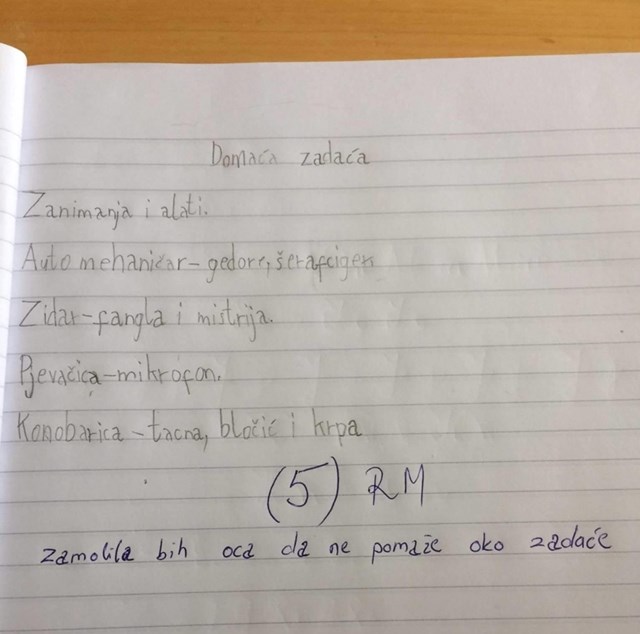 Domaća zadaća
Zanimanja i alati.
Auto mehaničar-gedore, šerafciger
Zidar-fangla i mistrija.
Pjevačica-mikrofon.
Konobarica-tacna, bločić i krpa
(5) RM
zamolila bih oca da ne pomaže oko zadaće